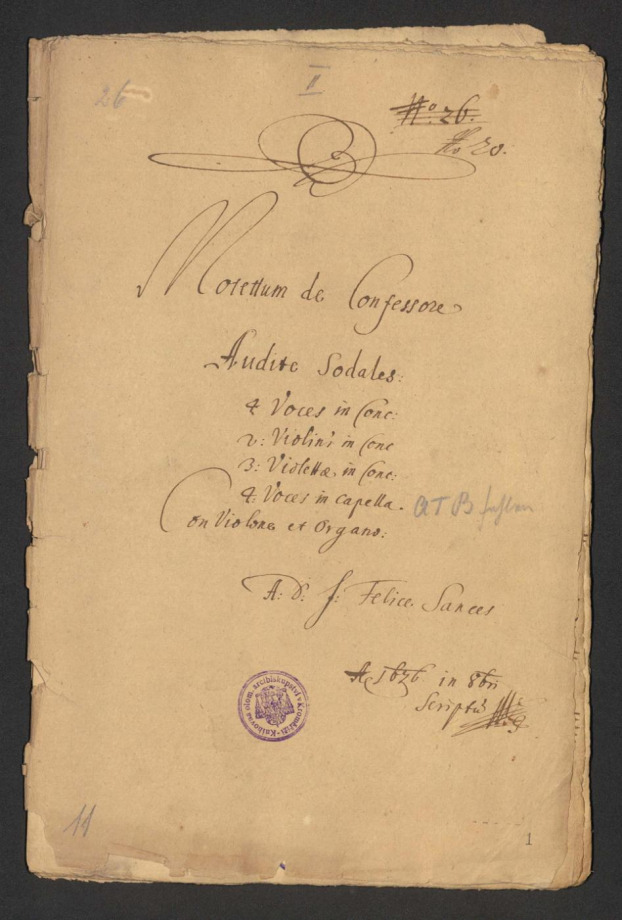 26
II
No. 26.
No 20.
Motettum de Confessore
Audite Sodales:
4 Voces in Conc:
2: Violini in Conc
3: Violettæ in Conc:
4: Voces in Capella.
A T B fehlen
Con Violone et Organo:
A: D: f: Felice Sances
in 8bri
Scriptū
Knihovna olom. arcibiskupství v Kroměříži
11
1